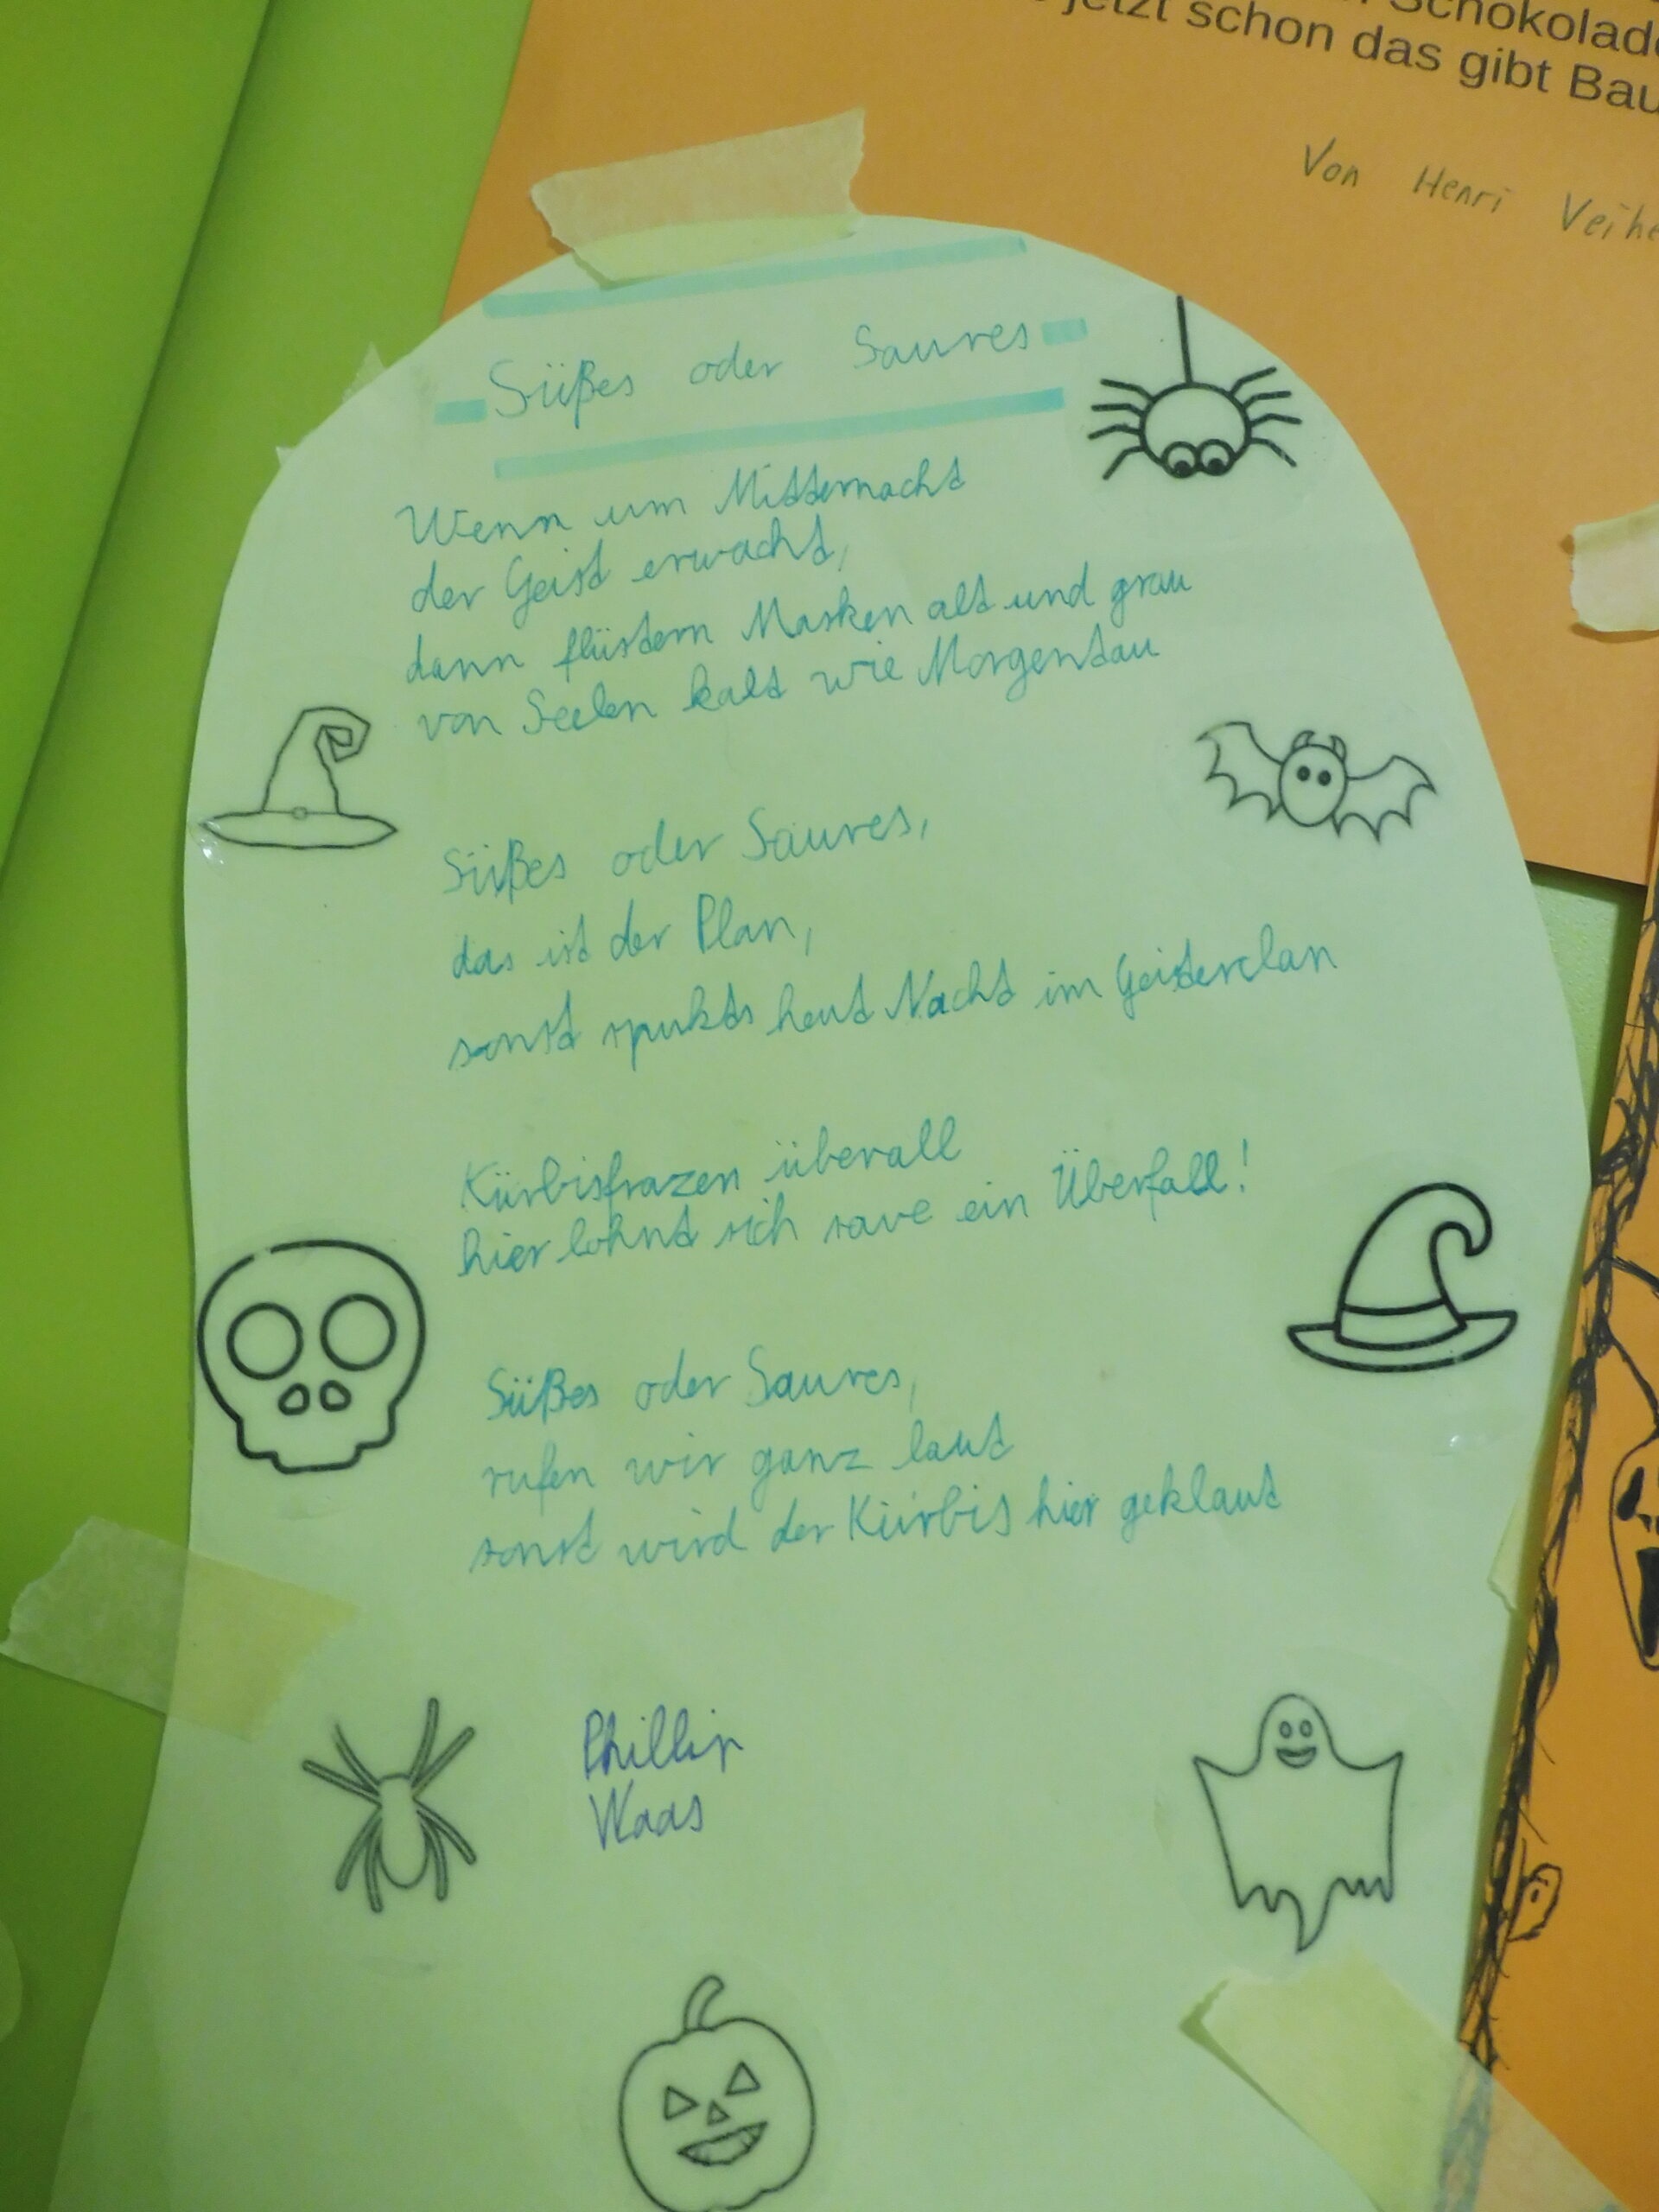 Schokolade
jetzt schon das gibt Bau
Von Henri Veihe
Süßes oder Saures
Wenn um Mitternacht
der Geist erwacht,
dann flüstern Masken alt und grau
von Seelen kalt wie Morgentau
Süßes oder Saures,
das ist der Plan,
sonst spukts heut Nacht im Geisterclan
Kürbisfrazen überall
hier lohnt sich save ein Überfall!
Süßes oder Saures,
rufen wir ganz laut
sonst wird der Kürbis hier geklaut
Phillip
Waas